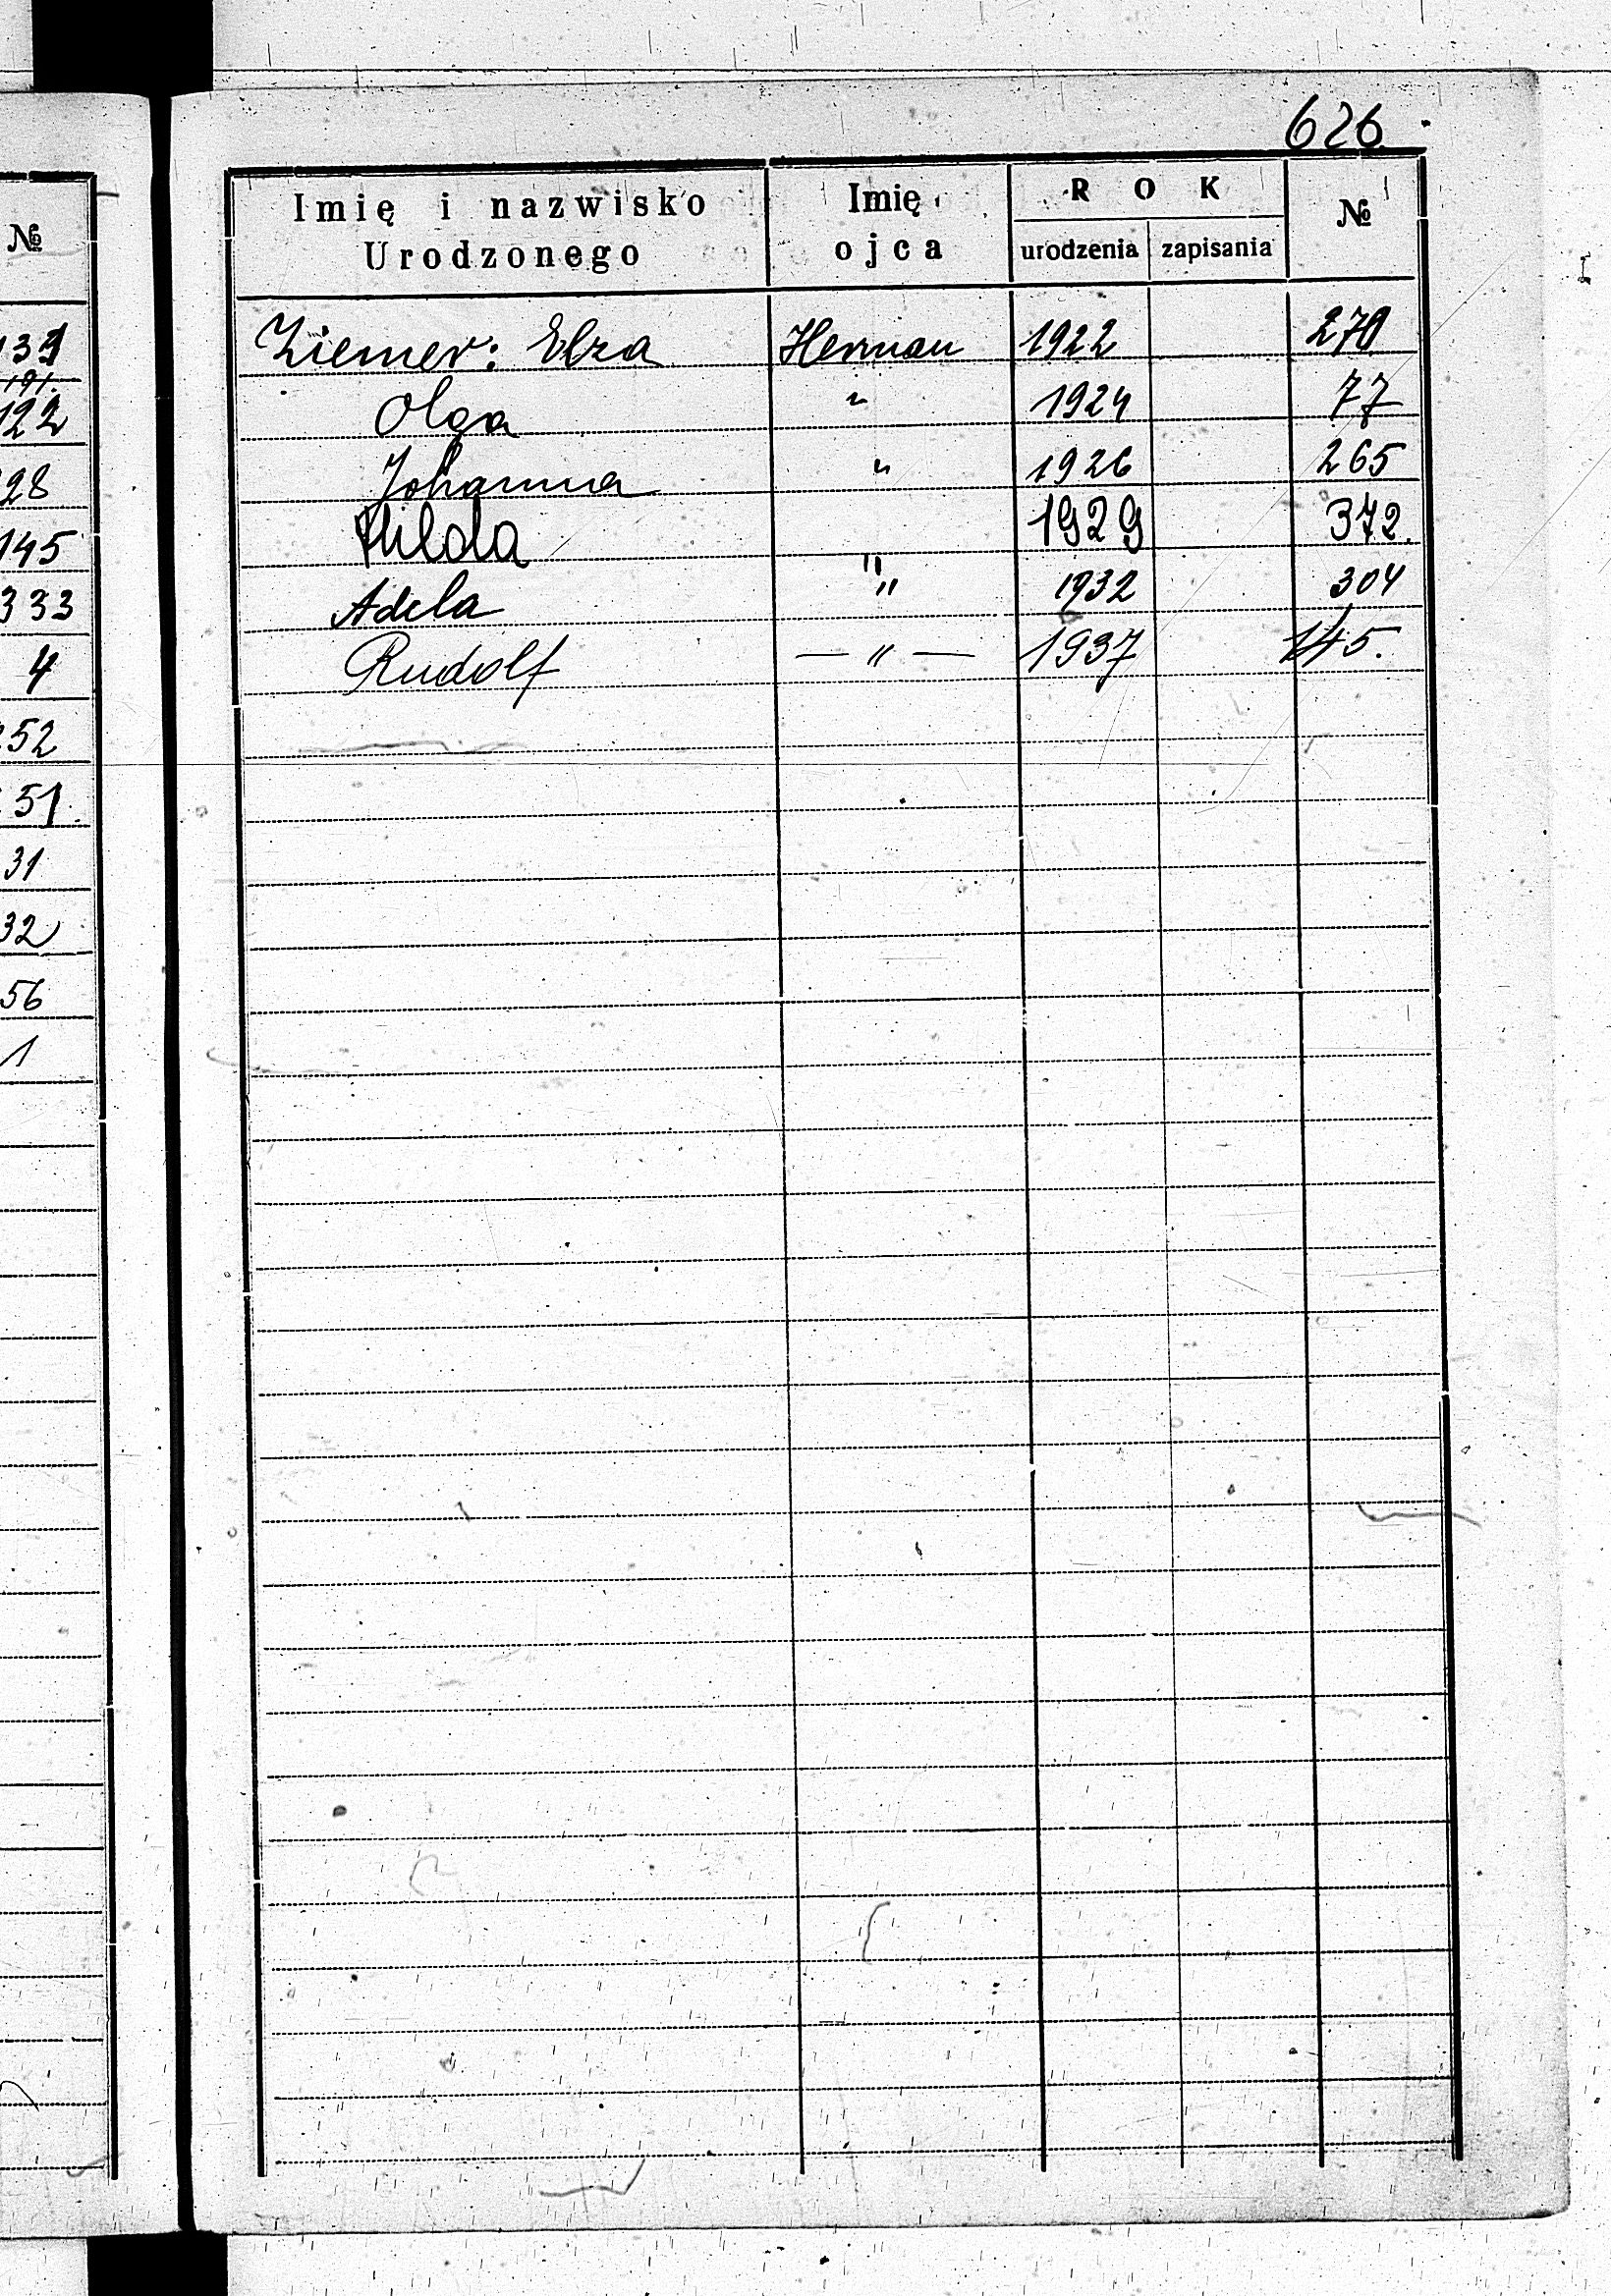 626
Imię i nazwisko Urodzonego Imię ojca ROK urodzenia zapisania №
№
Ziemer: Elza Herman 1922 270
Olga " 1924 77
Johanna " 1926 265
Hilda " 1929 372.
Adela " 1932 304
Rudolf — " — 1937 145.
122
28
145
333
4
52
51.
31
32
56
1